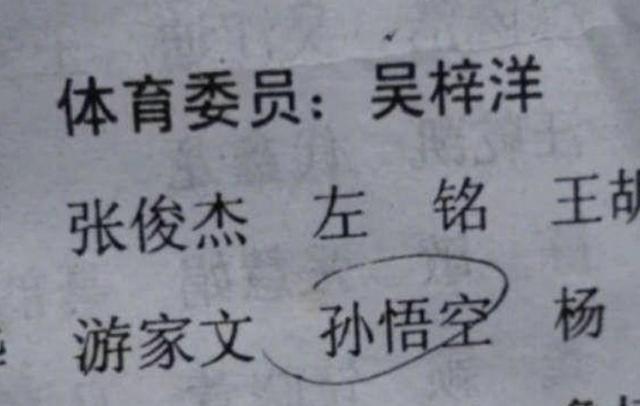 体育委员：吴梓洋
张俊杰 左 铭 王胡
游家文 孙悟空 杨